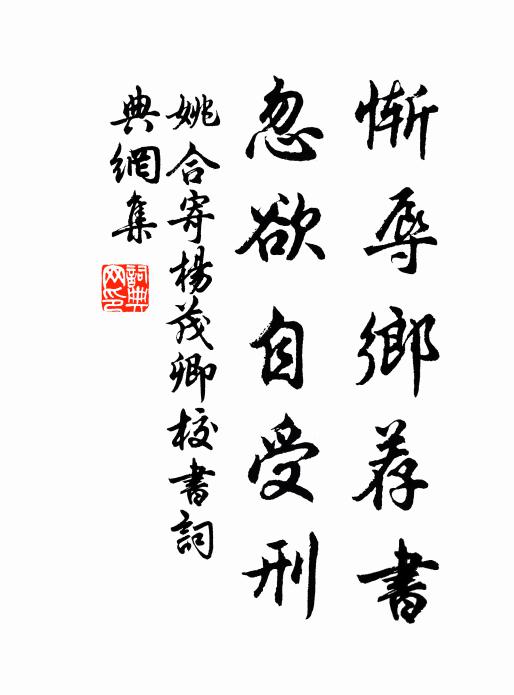 惭辱鄉荐書
忽欲自受刑
姚合寄楊茂卿校書詞
典網集
詞典網印